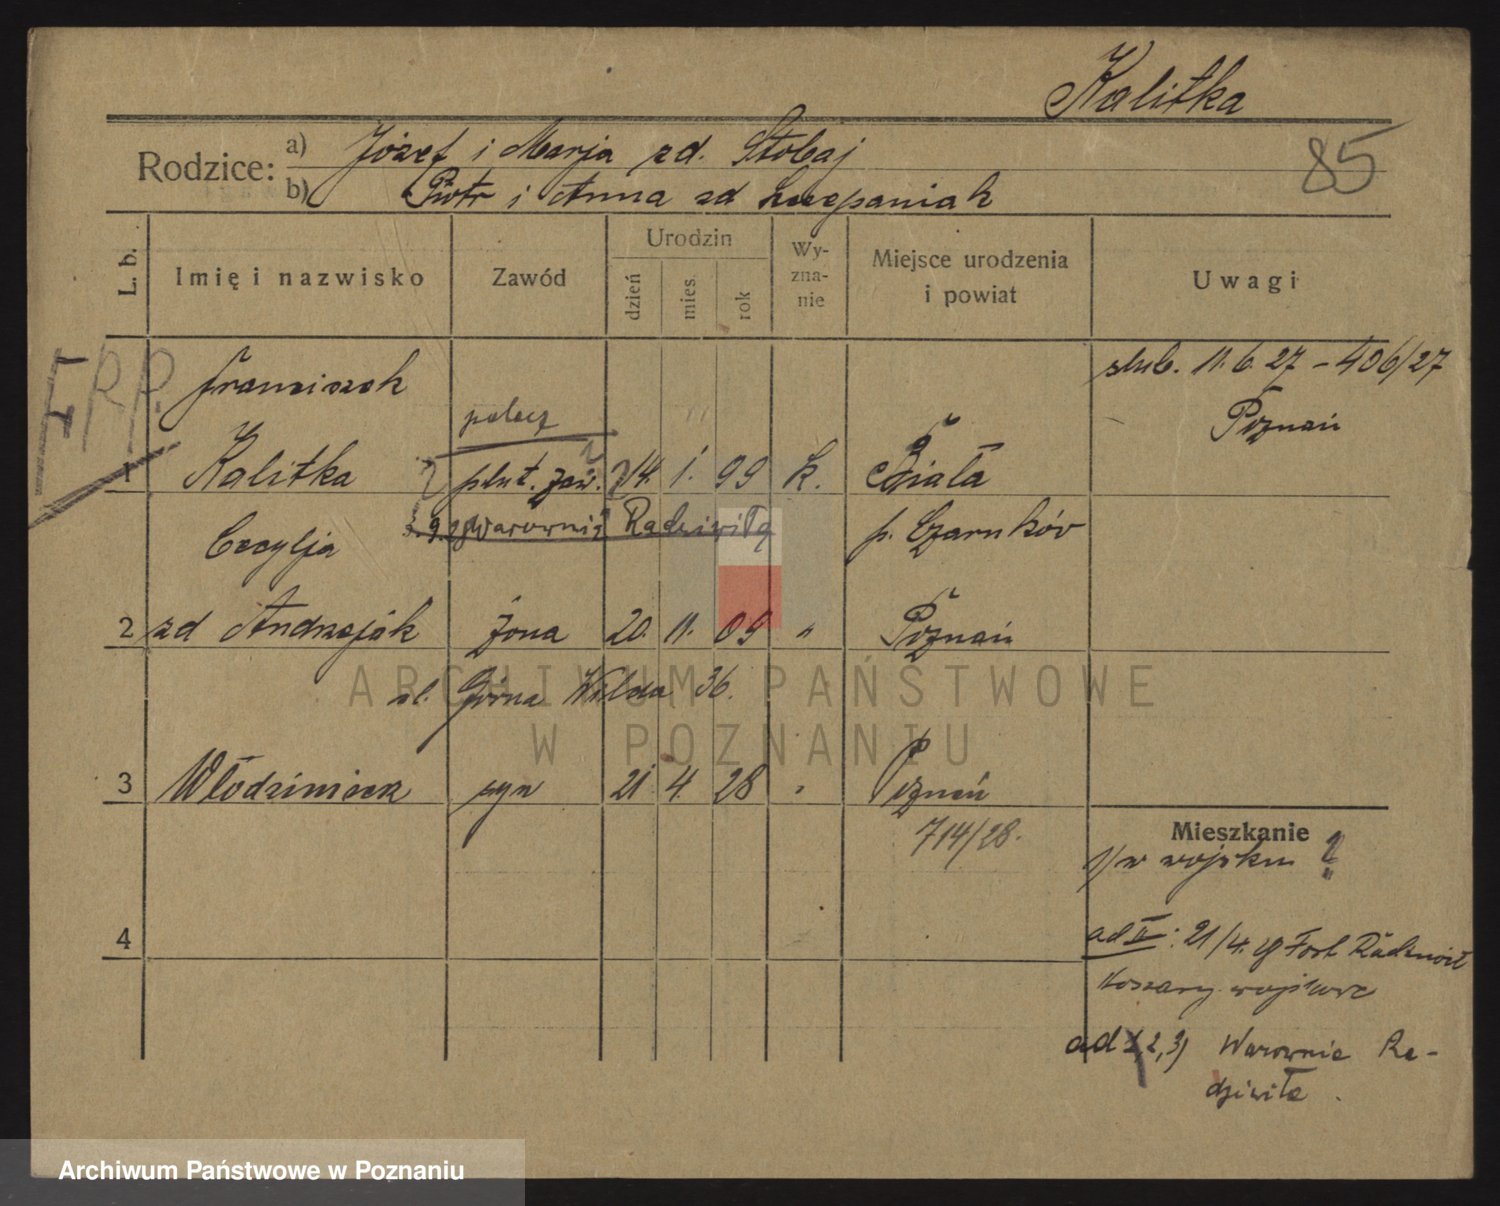 Kalitka
85
Rodzice: a) Józef i Marja zd. Stobaj
b) Piotr i Anna zd Szczepaniak
L. b.
Imię i nazwisko
Zawód
Urodzin
dzień
mies.
rok
Wy-
zna-
nie
Miejsce urodzenia
i powiat
Uwagi
Franciszek
ślub. 11.6.27 – 406/27
Poznań
1 Kalitka plut. zaw. 14. 1. 99 k. Biała
Warownia Radziwiłą
p. Czarnków
Cecylja
2 zd Andrzejak żona 20. 11. 09 " Poznań
ul. Górna Wilda 36.
3 Włodzimierz syn 21 4. 28 " Poznań
714/28.
Mieszkanie
1/ w wojsku ?
4
ad II: 21/4. Fort Radziwił
Koszary wojskowe
ad 1, 2, 3) Warownia Ra-
dziwiła.
ARCHIWUM PAŃSTWOWE
W POZNANIU
Archiwum Państwowe w Poznaniu